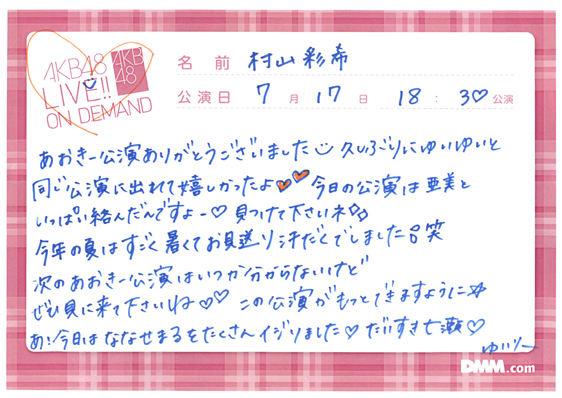 AKB48
LIVE!!
ON DEMAND
AKB
48
名前 村山彩希
公演日 7月17日 18:30♡公演
あおきー公演ありがとうございました 久しぶりにゆいゆいと
同じ公演に出れて嬉しかったよ♥♥ 今日の公演は亜美と
いっぱい絡んだんですよー♡見つけて下さいネ
今年の夏はすごく暑くてお見送り汗だくでしました笑
次のあおきー公演はいつか分からないけど
ぜひ見に来て下さいね♡♡ この公演がもっとできますように☆
あ!今日はななせまるをたくさんイジりました♡だいすき七瀬♡
ゆいりー
DMM.com